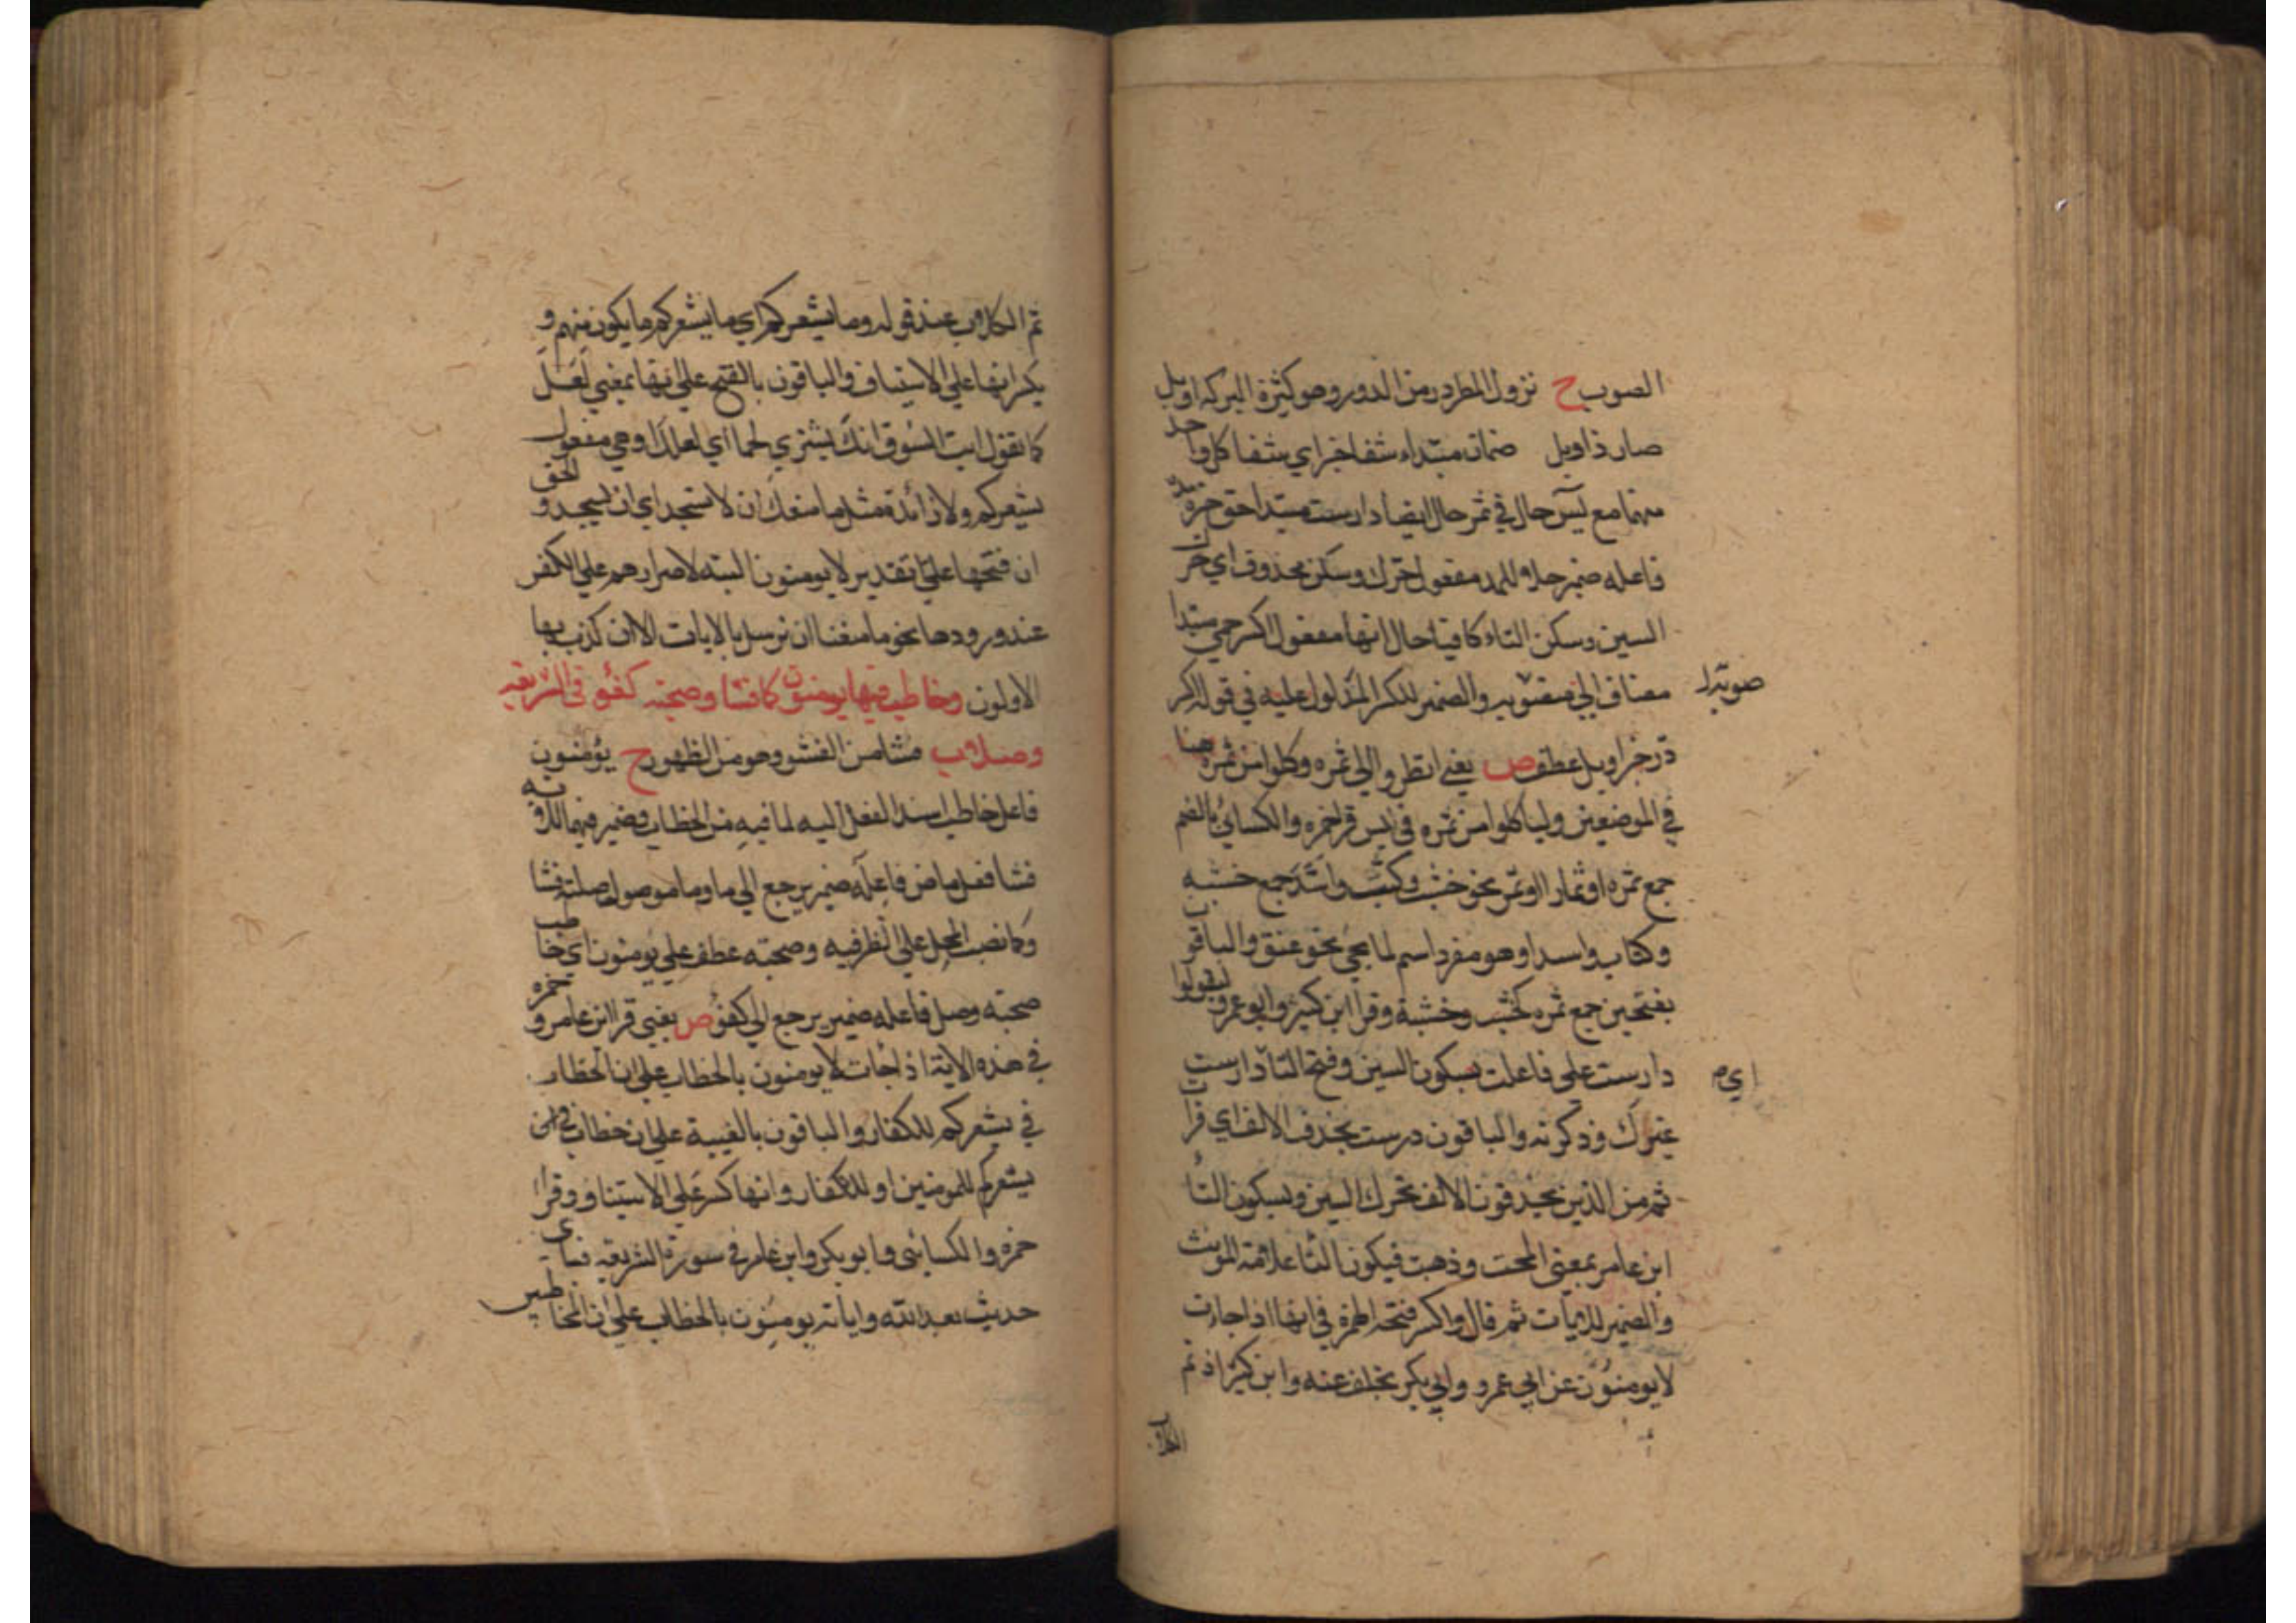 الصوب ح نزول المطر در من الدور وهو كثرة البركه اوبل
صار ذا وبل ضمان مبتداء شفا خبر اي شفا كل واحد
منهما مع يٓس حال في ثمر حال ايضا دارست مبتدا حق خبره مد
فاعله ضمير حلا وللمد مفعول حرك وسكن محذوف اي حرك
السين وسكن التاء كافيا حال انها مفعول اكسر حمي مبتدا
مضاف الي صوبه والضمير للكسر المدلول عليه في قوله اكسر
صوبه
در خبر اوبل عطف ص يعني انظروا الي ثمره وكلوا من ثمره هنا
في الموضعين ولياكلوا من ثمره في يس قرا حمزه والكسائي بالضم
جمع ثمره او ثمار او ثمر نحو خشب وكتب واسد جمع خشبه
وكتاب واسد او هو مفرد اسم لما يجي نحو عنق والباقون
بفتحين جمع ثمره كخشب وخشبة وقرا ابن كثير وابو عمرو ليقولوا
دارست علي فاعلت بسكون السين وفتح التا دارست
اي م
غيرك وذكرته والباقون درست بحذف الالف اي قرات
ثم من الذين يحذفون الالف تحرك السين وبسكون التا
ابن عامر بمعني انمحت وذهبت فيكون التا علامة المونث
والضمير للايات ثم قال واكسر فتحه الهمزة في انها اذا جات
لا يومنون عن ابي عمرو وابي بكر بخلف عنه وابن كثير اذ تم
الكلام
ثم الكلام عند قوله وما يشعركم اي ما يشعركم ما يكون منهم و
يكسر انها علي الاستيناف والباقون بالفتح علي انها بمعني لعل
كما تقول ايت السوق انك تشتري لحما اي لعلك اوهي مفعول
يشعركم ولا زائدة مثل ما منعك ان لا تسجد اي ان تسجد والحق
ان فتحها علي تقدير لا يومنون البته لاصرارهم علي الكفر
عند ورودها نحو ما منعنا ان نرسل بالايات الا ان كذب بها
الاولون وخاطب فيها يومنون كما فشا وصحبته كفؤ في الشريعه
وصلا ب فشا من الفشو وهو من الظهور ح يؤمنون
فاعل خاطب اسند الفعل اليه لما فيه من الخطاب وضمير فيها للايه
فشا فعل ماض فاعله ضمير يرجع الي ما وما موصول صلته فشا
وكما نصب المحل علي الظرفيه وصحبته عطف علي يومنون اي خاطب
صحبته وصل فاعله ضمير يرجع الي كفؤ ص يعني قرا ابن عامر وحمزه
في هذه الاية اذا جات لا يومنون بالخطاب علي ان الخطاب
في يشعركم للكفار والباقون بالغيبة علي ان خطاب
يشعركم للمومنين او للكفار وانها كسر علي الاستيناف وقرا
حمزه والكسائي وابو بكر وابن عامر في سورة الشريعه فباي
حديث بعد الله واياته يومنون بالخطاب علي ان المخاطبين